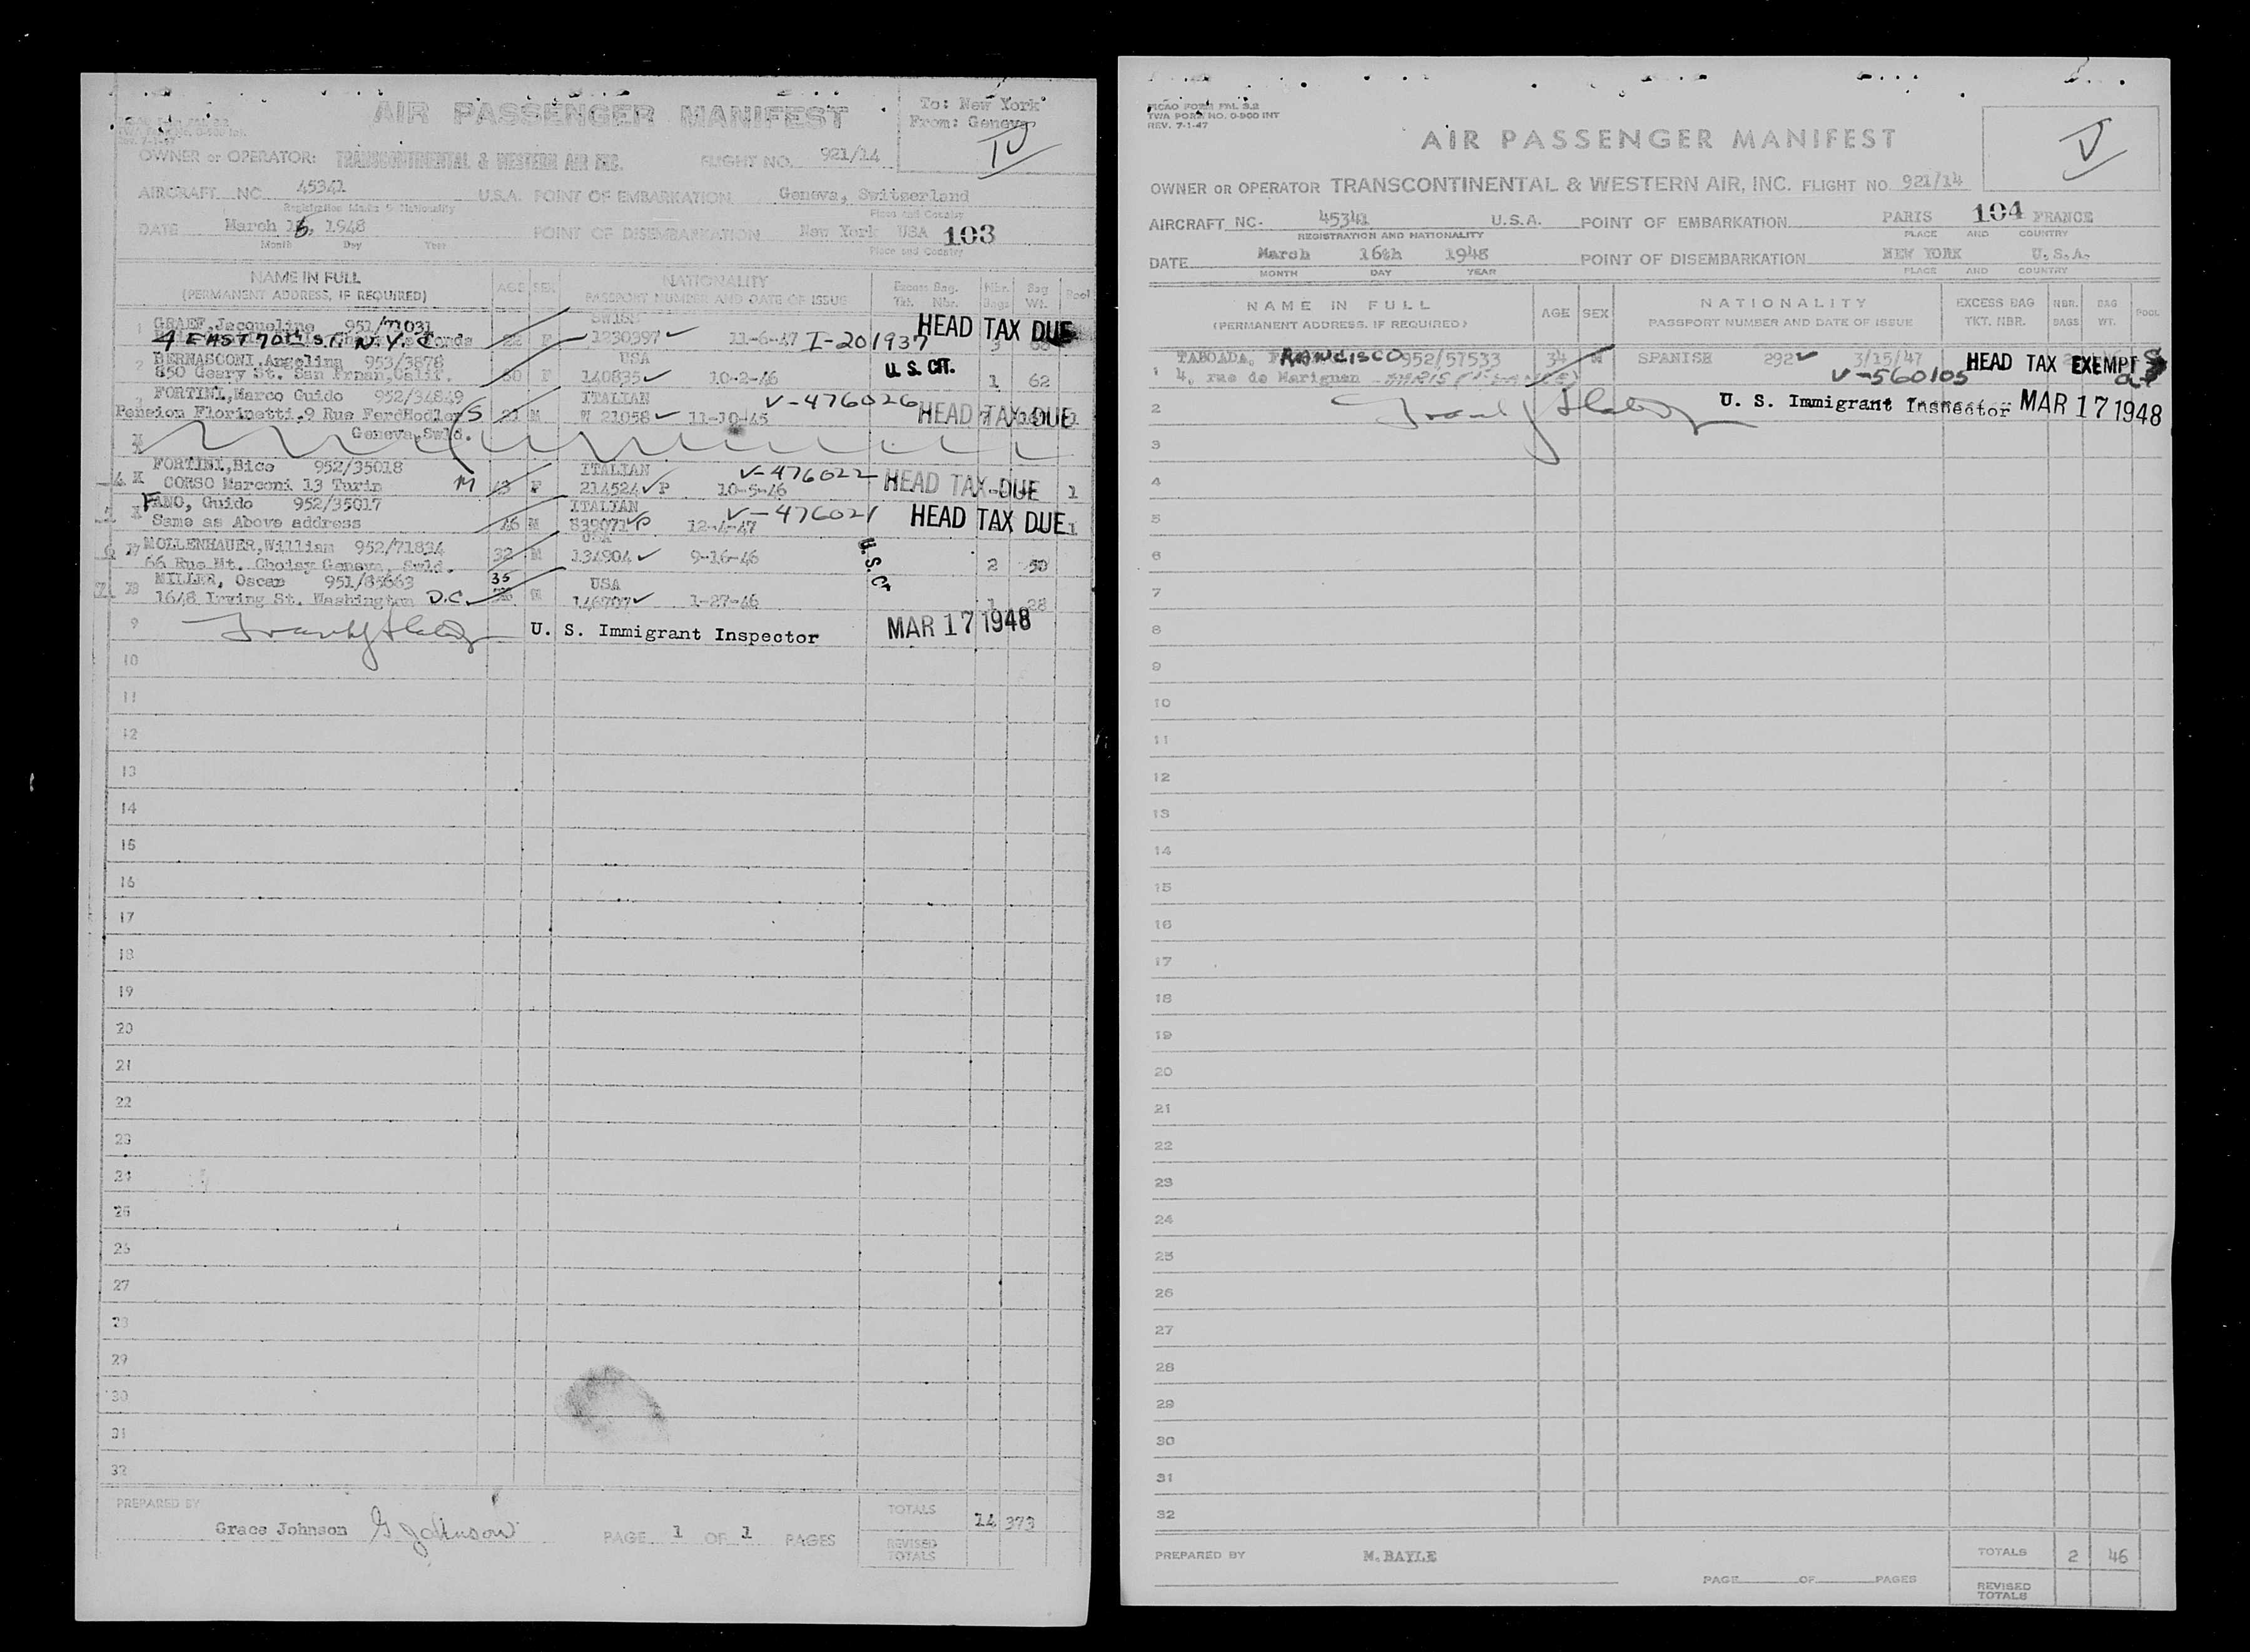 AIR PASSENGER MANIFEST
To: New York
From: Geneva
IV
OWNER or OPERATOR: TRANSCONTINENTAL & WESTERN AIR INC. FLIGHT NO. 921/14
AIRCRAFT NC. 45341 U.S.A. POINT OF EMBARKATION Geneva, Switzerland
Registration Marks & Nationality Place and Country
DATE March 16, 1948 POINT OF DISEMBARKATION New York USA 103
Month Day Year Place and Country
NAME IN FULL AGE SEX NATIONALITY Excess Bag. Nbr. Bag Pool
(PERMANENT ADDRESS, IF REQUIRED) PASSPORT NUMBER AND DATE OF ISSUE Tkt. Nbr. Bags Wt.
1 GRAEF, Jacqueline 951/71031 SWISS HEAD TAX DUE
4 EAST 70th ST. N.Y.C 22 F 1230397 11-6-47 I-201937 3
2 BERNASCONI, Angelina 953/3878 USA U.S. CIT.
850 Geary St. San Fran, Calif. 60 F 140835 10-2-46 1 62
3 FORTINI, Marco Guido 952/34849 ITALIAN V-476026
Pension Florinetti, 9 Rue FerdHodler S 21 M W 21058 11-10-45 HEAD TAX DUE
Geneva, Swld.
4 FORTINI, Bice 952/35018 ITALIAN V-476022
CORSO Marconi 13 Turin M 43 F 214524 P 10-5-46 HEAD TAX DUE 1
5 FANO, Guido 952/35017 ITALIAN V-476021
Same as Above address 46 M 839071 P 12-4-47 HEAD TAX DUE 1
6 MOLLENHAUER, William 952/71834 USA U.S. Ct
66 Rue Mt. Choisy Geneva, Swld. 32 M 134904 9-16-46 2 50
7 MILLER, Oscar 951/85663 35 USA
1648 Irving St. Washington D.C. M 146707 1-27-46 1 28
9 U. S. Immigrant Inspector MAR 17 1948
10
11
12
13
14
15
16
17
18
19
20
21
22
23
24
25
26
27
28
29
30
31
32
PREPARED BY
Grace Johnson G Johnson PAGE 1 OF 1 PAGES TOTALS 14 373
REVISED TOTALS
ICAO FORM FAL 3.2
TWA FORM NO. 0-900 INT
REV. 7-1-47
AIR PASSENGER MANIFEST
V
OWNER OR OPERATOR TRANSCONTINENTAL & WESTERN AIR, INC. FLIGHT NO. 921/14
AIRCRAFT NC- 45341 U.S.A. POINT OF EMBARKATION PARIS 104 FRANCE
REGISTRATION AND NATIONALITY PLACE AND COUNTRY
DATE March 16th 1948 POINT OF DISEMBARKATION NEW YORK U.S.A.
MONTH DAY YEAR PLACE AND COUNTRY
NAME IN FULL AGE SEX NATIONALITY EXCESS BAG NBR. BAG POOL
(PERMANENT ADDRESS, IF REQUIRED) PASSPORT NUMBER AND DATE OF ISSUE TKT. NBR. BAGS WT.
1 TABOADA, FRANCISCO 952/57533 34 M SPANISH 292 3/15/47 HEAD TAX EXEMPT
4, rue de Marignan PARIS (FRANCE) V-560105
2 U. S. Immigrant Inspector MAR 17 1948
3
4
5
6
7
8
9
10
11
12
13
14
15
16
17
18
19
20
21
22
23
24
25
26
27
28
29
30
31
32
PREPARED BY M. BAYLE TOTALS 2 46
PAGE OF PAGES REVISED TOTALS